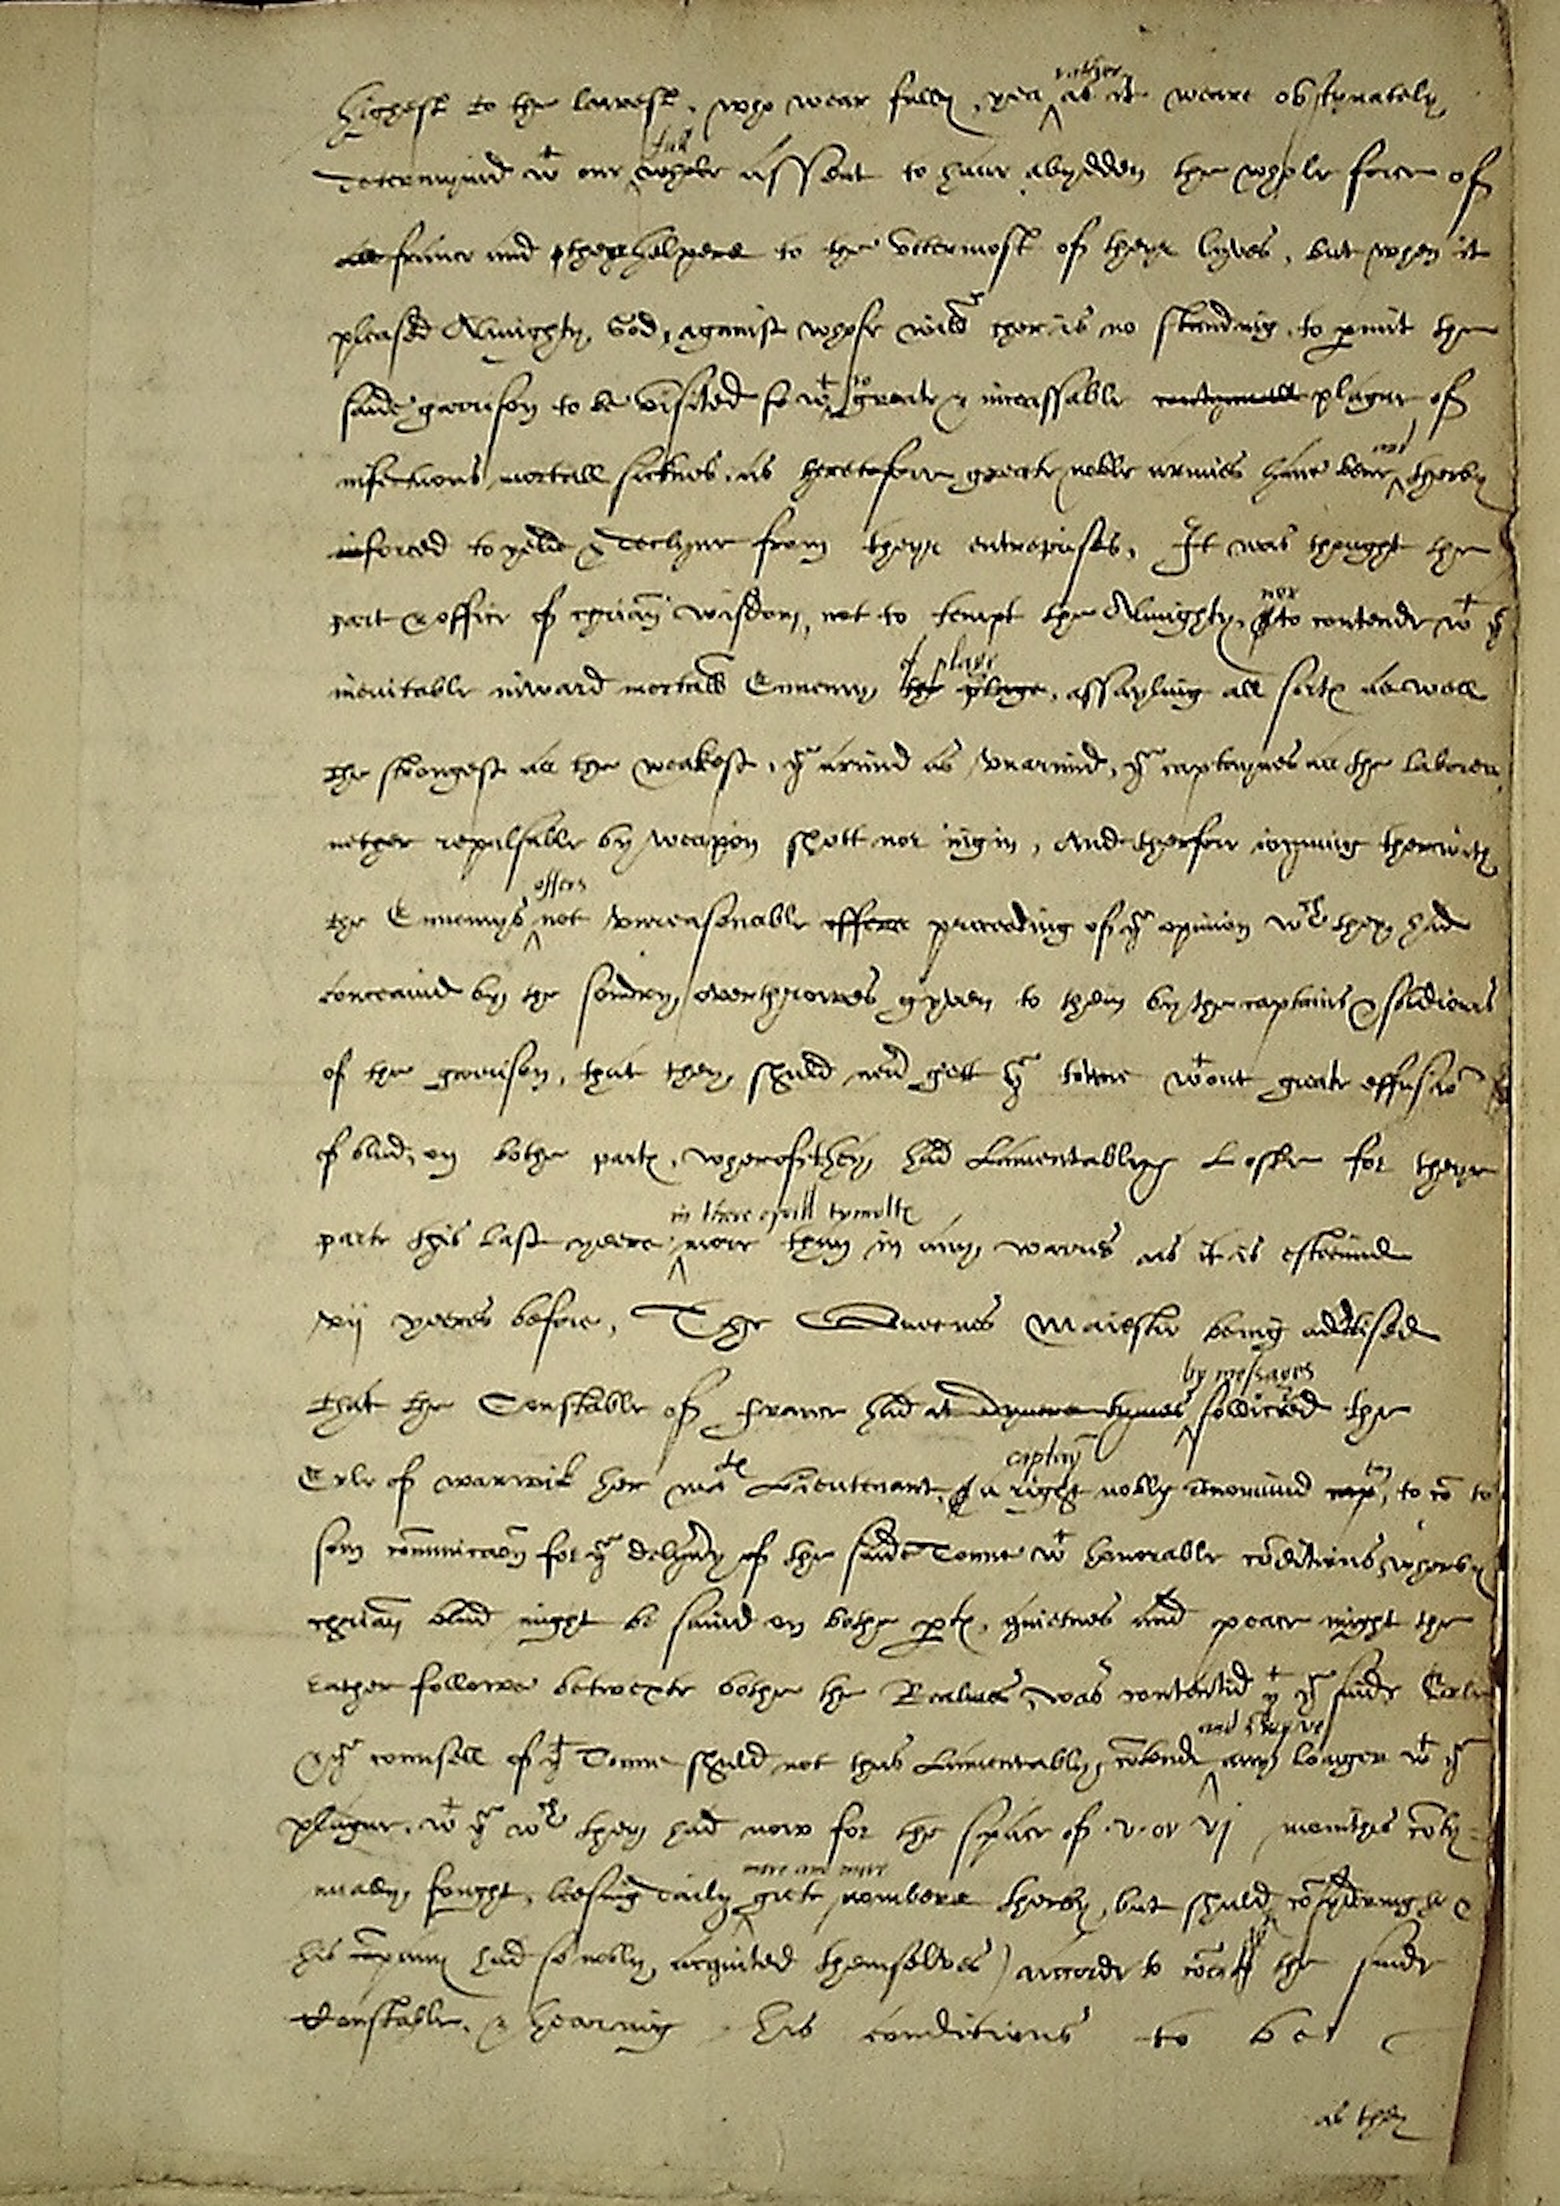 highest to the lowest, who wear fully, yea rather as it weare obstynately
determynid wt one full whole assent to have abydden the whole force of
all france and ther helpers to the uttermost of theyr lyves, but when it
pleased Almighty God, aganist whose will ther is no standing, to permit the
saide garrison to be visited so wt to greate & incessable contynuall plague of
infectious mortall sicknes, as heretofore greate noble armies have bene only therby
inforced to yelde & declyne from theyr entreprises, It was thought the
part & office of christian wisdom, not to tempt the Almighty, nor to contende wt ye
inevitable inward mortall Ennemy of plage the plage, assayling all sortes as well
the strongest as the weakest, ye armid as unarmid, ye captaynes as the laborers
nether repulsable by weapon shott nor ingin, And therfore ioyning therwith
the Ennemys offers not unreasonable offers proceding of ye opinion wch they had
conceavid by the sondry overthrowes gyven to them by the captains & soldieurs
of the garrison, that they shuld never gett ye towne wtout greate effusion
of blud, on bothe partes, wherof they had Lamentably Loste for theyr
parte this last yeere in there civill tymultes more than in any warres as it is estemid
xii yeeres before, The Quenes Maiestie being advertised
that the Constable of France had at dyverse tymes by messages sollicited the
Erle of warwik her mates Lieutenant, a right nobly renomind captayn, to com to
som communication for ye delyvery of the saide Towne wt honorable conditions, wherby
christian blud might be savid on bothe partes, quietnes and peace might the
rather followe betwext bothe the Realmes, was contentid yt ye saide Erle
& ye counsell of yt Towne shuld not thus Lamentably contende and stryve any longer wt ye
plague, wt ye wch they had now for the space of v or vj monthes conty=
nually fought, leesing daily more and more grete nombers therby, but shuld considering he &
his company had so nobly acquited themselves) accorde to the saide
Constable, & hearing his conditions to be
as they